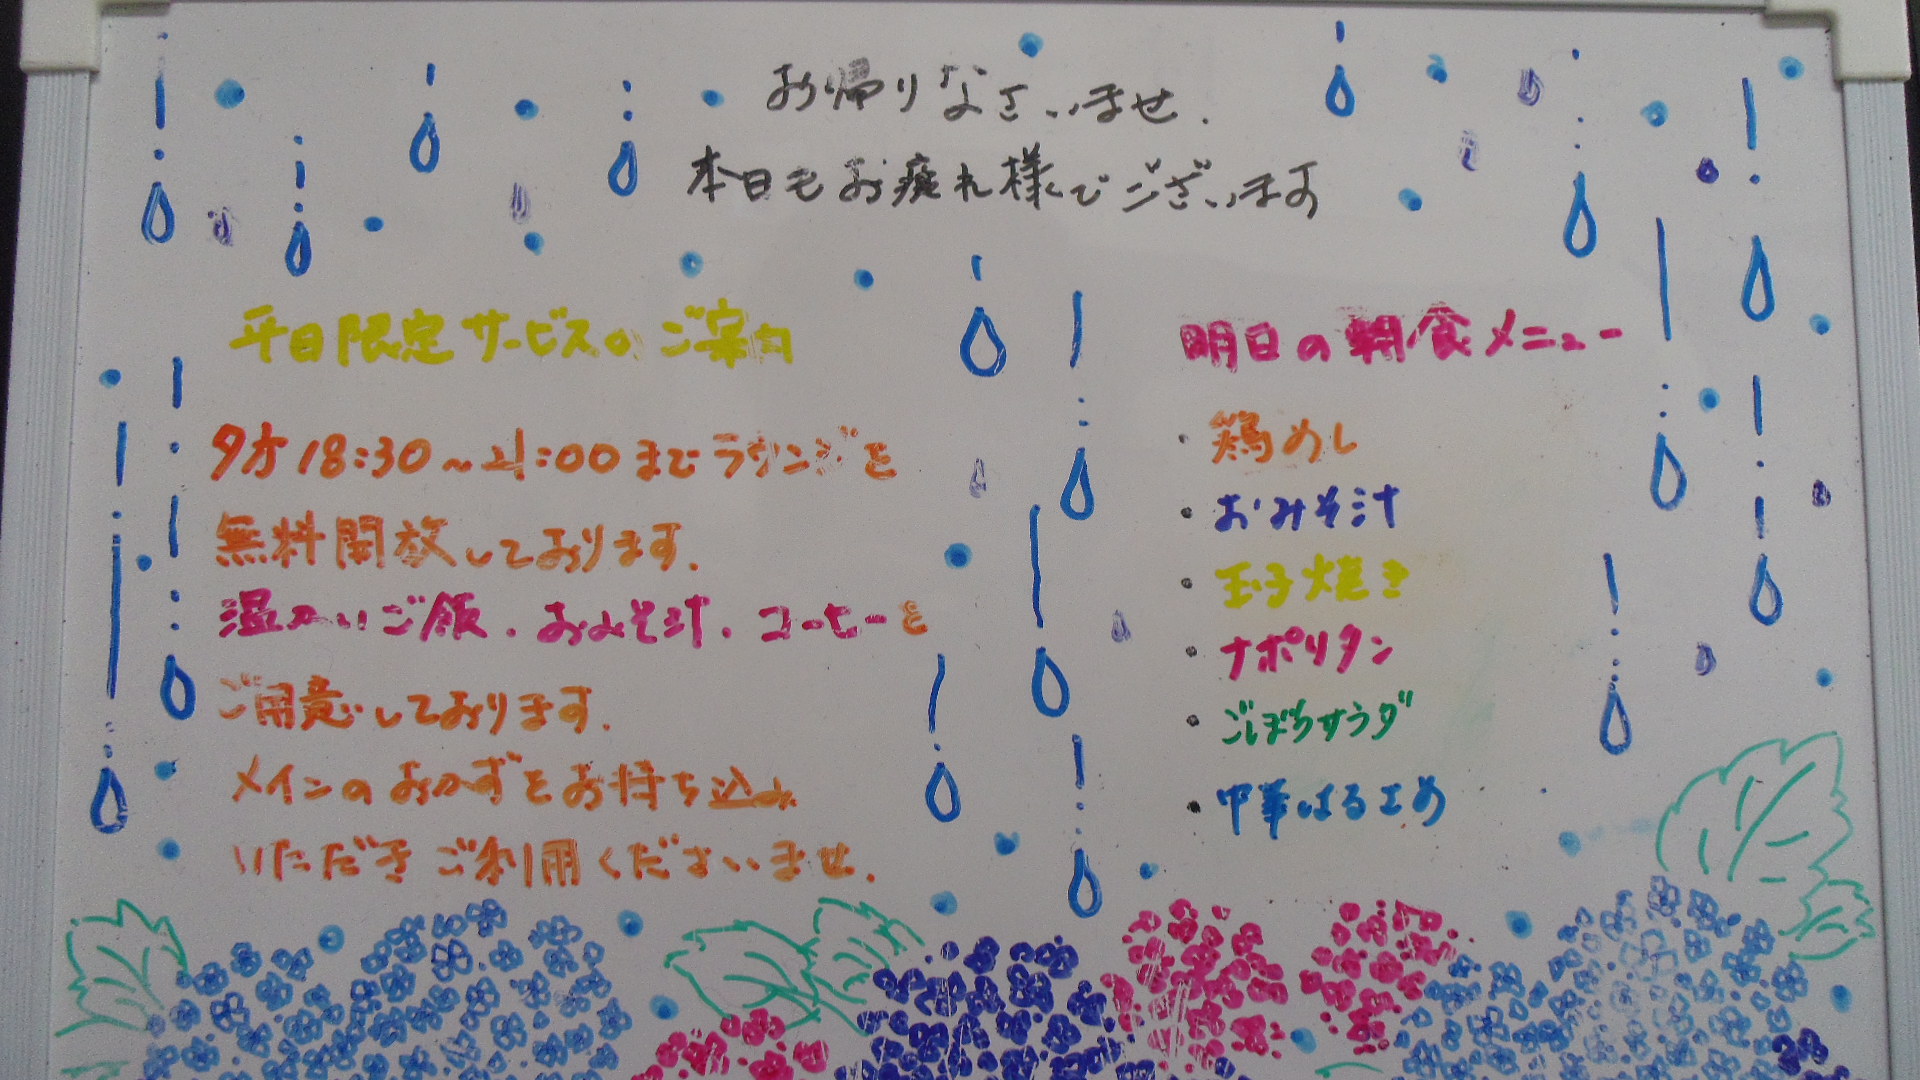 お帰りなさいませ.
本日もお疲れ様でございます
平日限定サービスのご案内
夕方18:30～21:00までラウンジを
無料開放しております.
温かいご飯.おみそ汁.コーヒーを
ご用意しております.
メインのおかずをお持ち込み
いただきご利用くださいませ.
明日の朝食メニュー
・鶏めし
・おみそ汁
・玉子焼き
・ナポリタン
・ごぼうサラダ
・中華はるさめ